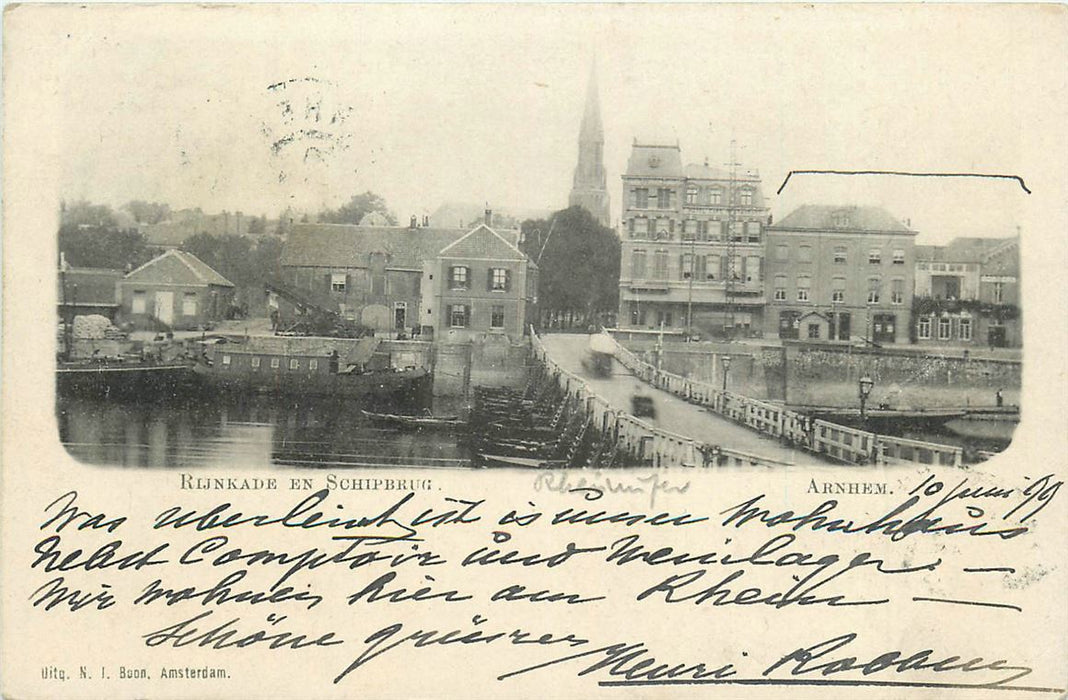 RIJNKADE EN SCHIPBRUG.
ARNHEM.
Rheinufer
10 Juni 99
Was überleint ist is unser Wohnhaus
nebst Comptoir und Weinlager. —
Wir wohnen hier am Rhein —
Schöne grüsse
Henri
Uitg. N. J. Boon, Amsterdam.